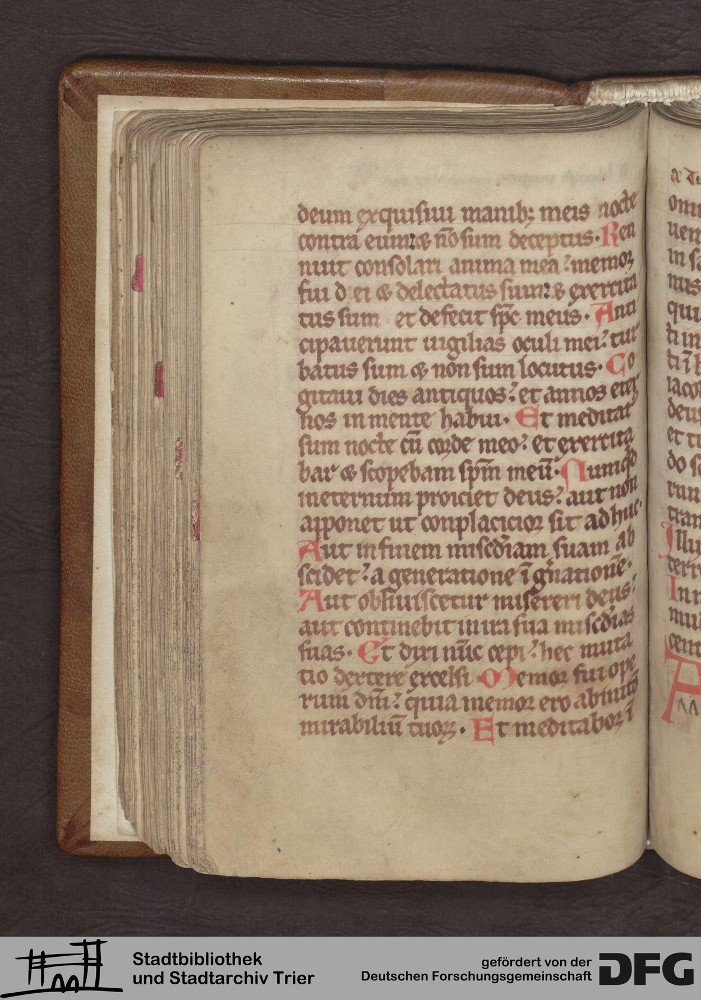 deum exquisiui manib; meis nocte
contra eum: & nō sum deceptus. Ren
nuit consolari anima mea: memor
fui dei & delectatus sum: & exercita
tus sum et defecit spc meus. Anti
cipauerunt uigilias oculi mei: tur
batus sum & non sum locutus. Co
gitaui dies antiquos: et annos eter
nos in mente habui. Et meditat
sum nocte cū corde meo: et exercita
bar & scopebam spm meū. Numqd
ineternum proiciet deus: aut non
apponet ut conplacicior sit adhuc.
Aut in finem miscdiam suam ab
scidet: a generatione ī gnationē.
Aut obliuiscetur misereri deus:
aut continebit in ira sua miscdias
suas. Et dixi nūc cepi: hec muta
tio dextere excelsi. Memor fui ope
rum dm: quia memor ero abinitō
mirabiliū tuoꝝ. Et meditabor ī
Stadtbibliothek
und Stadtarchiv Trier
gefördert von der
Deutschen Forschungsgemeinschaft
DFG